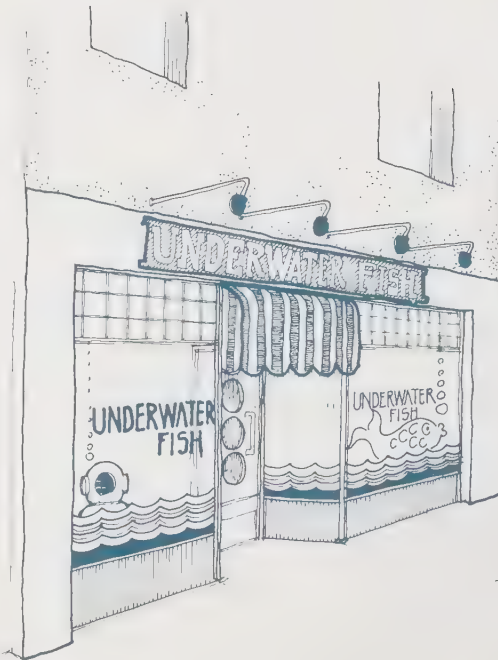 UNDERWATER FISH
UNDERWATER
FISH
UNDERWATER
FISH